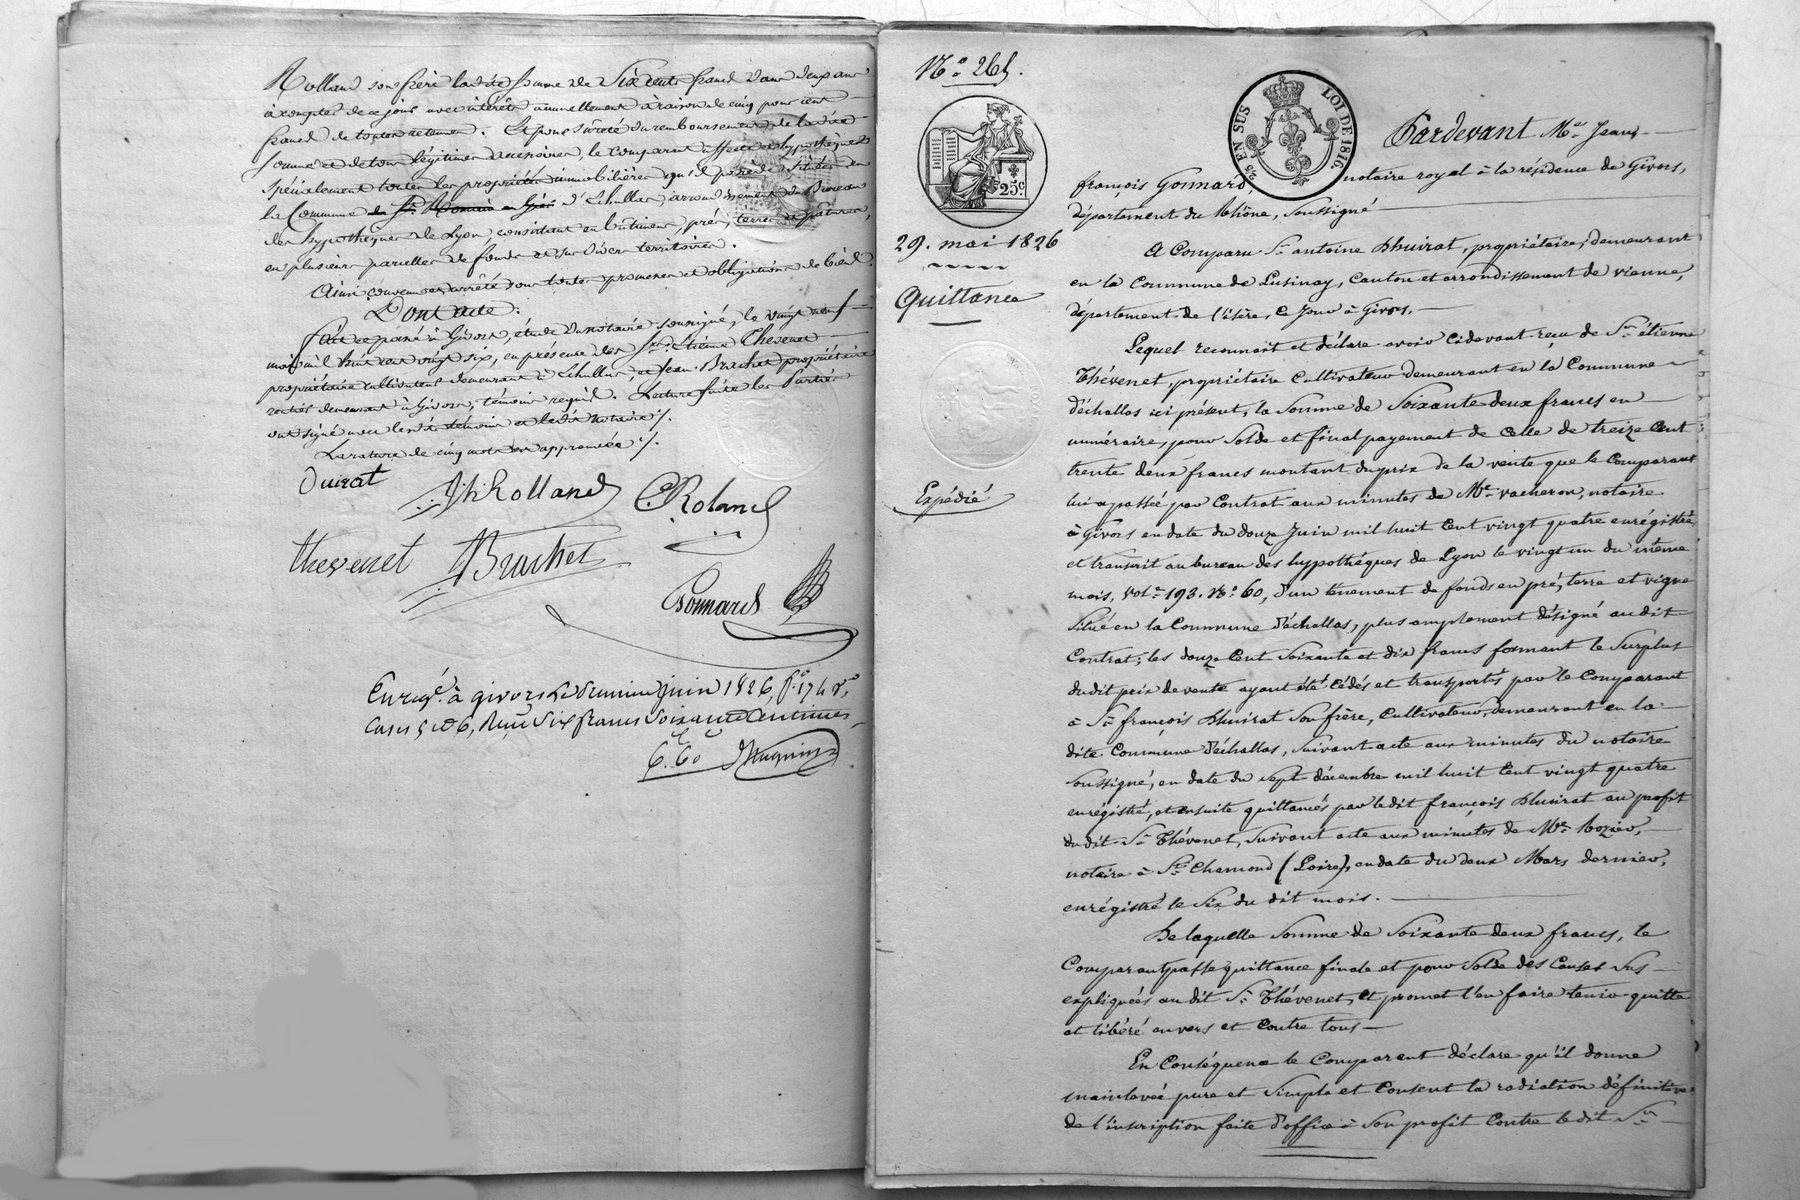 Rolland son frère ladite somme de Six cents francs dans deux ans
à compter de ce jour avec intérêts annuellement à raison de cinq pour cent
francs de toutes retenues. Et pour sûreté du remboursement de ladite
somme et de tous légitimes accessoires, le comparant affecte et hypothèque
spécialement toutes les propriétés immobilières qu'il possède situées en
la Commune de St. Romain en Gier d'Echallas arrondissement du Bureau
des hypothèques de Lyon, consistant en bâtiments, prés, terres et pâtures,
en plusieurs parcelles de fonds et sur divers territoires.
Ainsi convenu et arrêté sous toutes promesses et obligations de bien
Dont acte :
fait et passé à Givors, étude du notaire soussigné, le vingt neuf
mai mil huit cent vingt six, en présence des Srs. Etienne Thevenet
propriétaire cultivateur demeurant à Echallas, et Jean Brachet propriétaire
rentier demeurant à Givors, témoins requis. Lecture faite les parties
ont signé avec lesdits témoins et ledit notaire /.
La rature de cinq mots est approuvée /.
Duirat
Jh Rolland
C. Roland
thevenet
JBrachet
Gonnard
Enregé. à givors le premier juin 1826, fo. 174 Vo.
Cases 5 et 6, Reçu Six francs Soixante Centimes
6.f 60 c
No. 265.
25c
29. mai 1826
Quittance
Expédié
EN SUS
LOI DE 1816.
Pardevant Me. Jean
françois Gonnard, notaire royal à la résidence de Givors,
département du Rhône, soussigné
A Comparu Sr. antoine Dhuirat, propriétaire, demeurant
en la Commune de Lusinay, Canton et arrondissement de vienne,
département de l'isère, ce Jour à Givors.
Lequel reconnait et déclare avoir cidevant reçu de Sr. étienne
Thévenet, propriétaire Cultivateur demeurant en la Commune
d'échallas ici présent, la Somme de Soixante deux francs en
numéraire, pour Solde et final payement de Celle de treize Cent
trente deux francs montant du prix de la vente que le Comparant
lui a passée par Contrat aux minutes de Me. vacheron, notaire
à Givors en date du douze Juin mil huit Cent vingt quatre enrégistré
et transcrit au bureau des hypothéques de Lyon le vingt un du même
mois, vol. 193. No. 60, d'un tènement de fonds en pré, terre et vigne
Situé en la Commune d'échallas, plus amplement désigné audit
Contrat; les douze Cent Soixante et dix francs formant le Surplus
dudit prix de vente ayant été cédés et transportés par le Comparant
à Sr. françois Dhuirat Son frère, Cultivateur, demeurant en la
dite Commune d'échallas, suivant acte aux minutes du notaire
soussigné, en date du sept décembre mil huit Cent vingt quatre
enrégistré, et ensuite quittancés par ledit françois Dhuirat au profit
dudit Sr. Thévenet, suivant acte aux minutes de Me. Rozier,
notaire à St. Chamond (Loire), en date du deux Mars dernier,
enrégistré le Six du dit mois.
De laquelle Somme de Soixante deux francs, le
Comparant passe quittance finale et pour Solde des Causes Sus
expliquées au dit Sr. Thévenet, et promet l'en faire tenir quitte
et libéré envers et Contre tous
En Conséquence le Comparant déclare qu'il donne
mainlevée pure et Simple et Consent la radiation définitive
de l'inscription faite d'office à Son profit Contre le dit Sr.